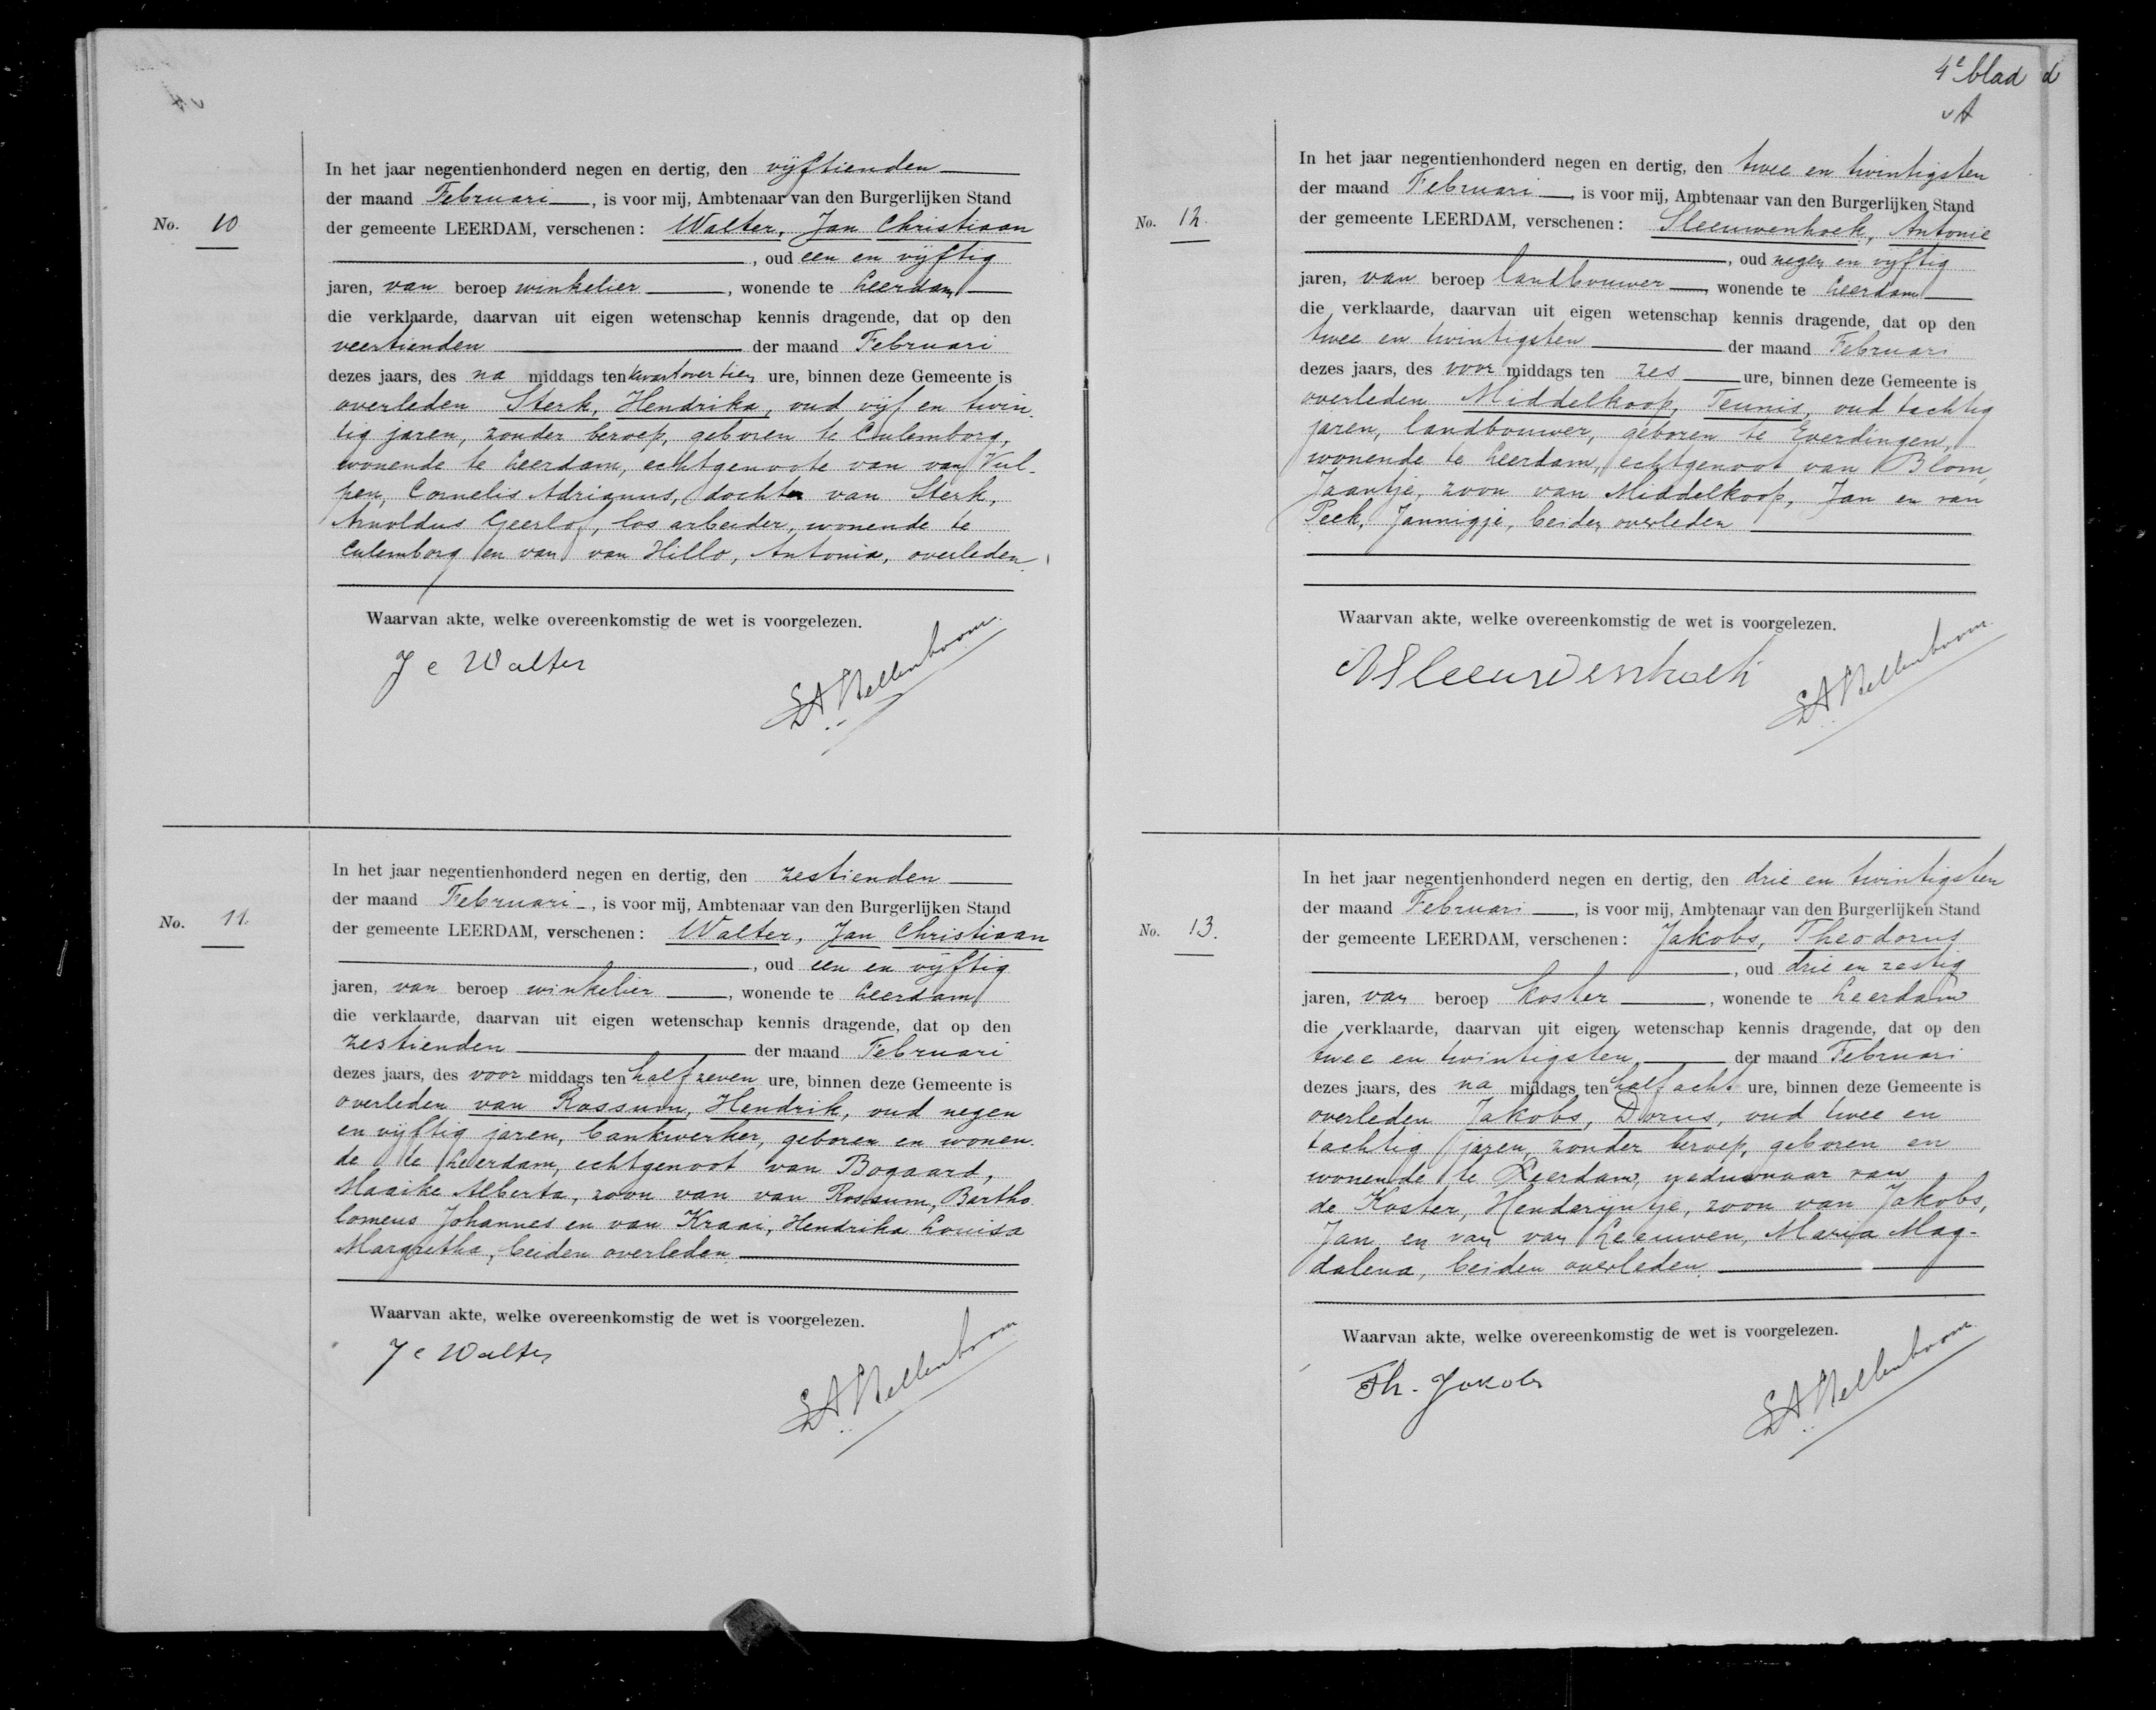 No. 10
In het jaar negentienhonderd negen en dertig, den vijftienden
der maand Februari, is voor mij, Ambtenaar van den Burgerlijken Stand
der gemeente LEERDAM, verschenen: Walter, Jan Christiaan
, oud een en vijftig
jaren, van beroep winkelier, wonende te Leerdam
die verklaarde, daarvan uit eigen wetenschap kennis dragende, dat op den
veertienden der maand Februari
dezes jaars, des na middags ten kwart over tien ure, binnen deze Gemeente is
overleden Sterk, Hendrika, oud vijf en twin-
tig jaren, zonder beroep, geboren te Culemborg,
wonende te Leerdam, echtgenoote van van Vul-
pen, Cornelis Adrianus, dochter van Sterk,
Arnoldus Geerlof, los arbeider, wonende te
Culemborg en van van Hillo, Antonia, overleden.
Waarvan akte, welke overeenkomstig de wet is voorgelezen.
J C Walter
No. 11.
In het jaar negentienhonderd negen en dertig, den zestienden
der maand Februari, is voor mij, Ambtenaar van den Burgerlijken Stand
der gemeente LEERDAM, verschenen: Walter, Jan Christiaan
, oud een en vijftig
jaren, van beroep winkelier, wonende te Leerdam
die verklaarde, daarvan uit eigen wetenschap kennis dragende, dat op den
zestienden der maand Februari
dezes jaars, des voor middags ten half zeven ure, binnen deze Gemeente is
overleden van Rossum, Hendrik, oud negen
en vijftig jaren, bankwerker, geboren en wonen-
de te Leerdam, echtgenoot van Bogaard,
Maaike Alberta, zoon van van Rossum, Bartho
lomeus Johannes en van Kraai, Hendrika Louisa
Margretha, beiden overleden.
Waarvan akte, welke overeenkomstig de wet is voorgelezen.
J C Walter
4e blad
No. 12.
In het jaar negentienhonderd negen en dertig, den twee en twintigsten
der maand Februari, is voor mij, Ambtenaar van den Burgerlijken Stand
der gemeente LEERDAM, verschenen: Sleeuwenhoek, Antonie
, oud negen en vijftig
jaren, van beroep landbouwer, wonende te Leerdam
die verklaarde, daarvan uit eigen wetenschap kennis dragende, dat op den
twee en twintigsten der maand Februari
dezes jaars, des voor middags ten zes ure, binnen deze Gemeente is
overleden Middelkoop, Teunis, oud tachtig
jaren, landbouwer, geboren te Everdingen,
wonende te Leerdam, echtgenoot van Blom,
Jaantje, zoon van Middelkoop, Jan en van
Peek, Jannigje, beiden overleden
Waarvan akte, welke overeenkomstig de wet is voorgelezen.
A Sleeuwenhoek
No. 13.
In het jaar negentienhonderd negen en dertig, den drie en twintigsten
der maand Februari, is voor mij, Ambtenaar van den Burgerlijken Stand
der gemeente LEERDAM, verschenen: Jakobs, Theodorus
, oud drie en zestig
jaren, van beroep koster, wonende te Leerdam
die verklaarde, daarvan uit eigen wetenschap kennis dragende, dat op den
twee en twintigsten der maand Februari
dezes jaars, des na middags ten half acht ure, binnen deze Gemeente is
overleden Jakobs, Dorus, oud twee en
tachtig jaren, zonder beroep, geboren en
wonende te Leerdam, weduwnaar van
de Koster, Henderijntje, zoon van Jakobs,
Jan en van van Leeuwen, Maria Mag-
dalena, beiden overleden.
Waarvan akte, welke overeenkomstig de wet is voorgelezen.
Th. Jakobs